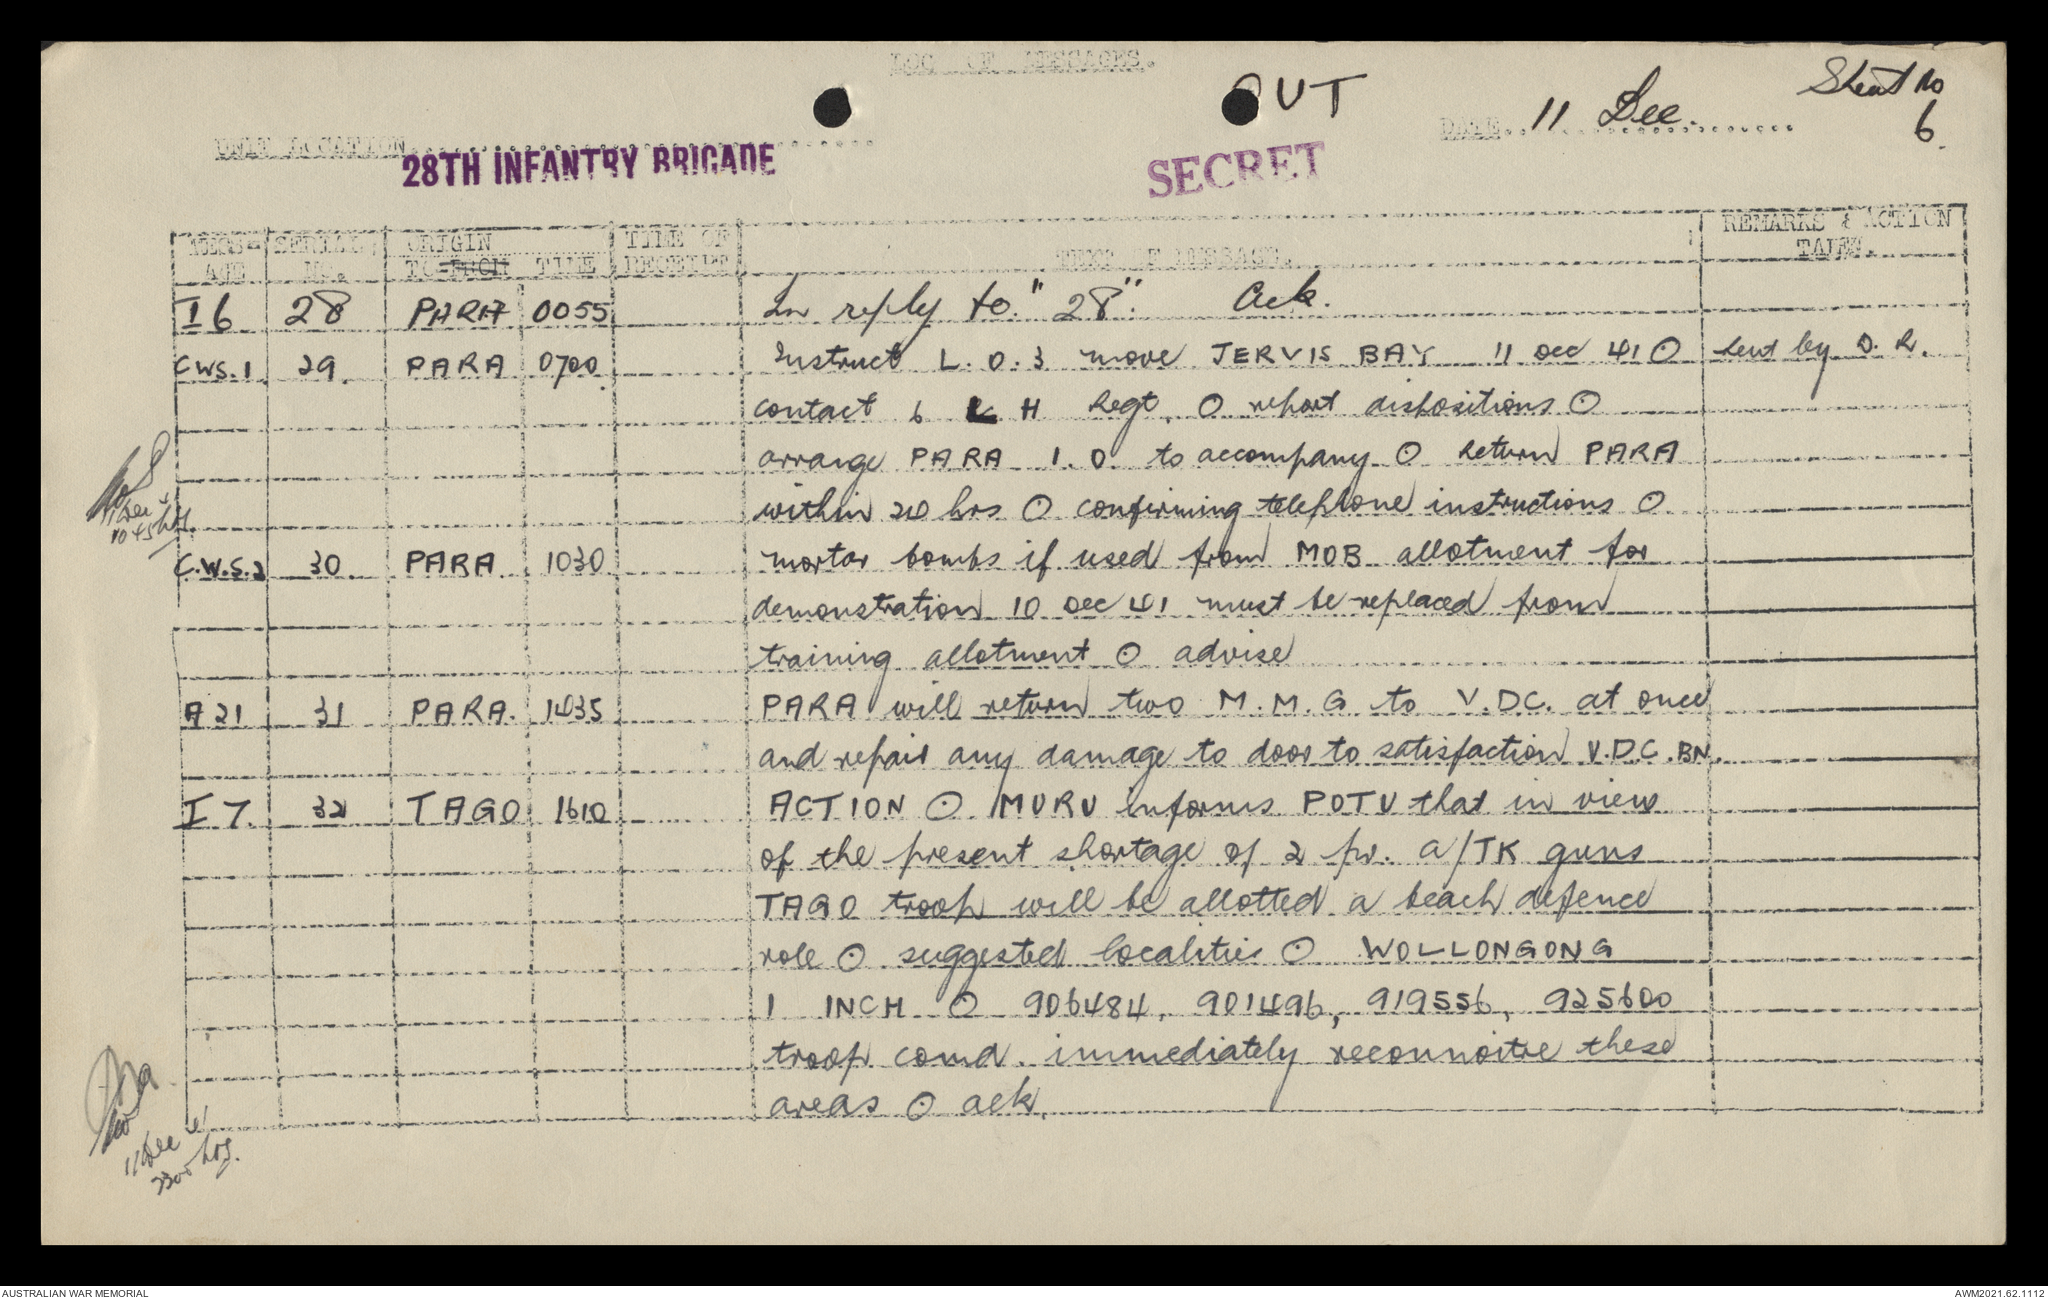 LOG OF MESSAGES.
OUT
Sheet No
6.
DATE 11 Dec.
UNIT LOCATION
28TH INFANTRY BRIGADE
SECRET
MESS- SERIAL ORIGIN TIME OF TEXT OF MESSAGE. REMARKS & ACTION
AGE NO. TO-FROM TIME RECEIPT TAKEN.
I 6 28 PARA 0055 In reply to "28". Ack.
C.W.S.1 29. PARA 0700 Instruct L.O.3 move JERVIS BAY 11 Dec 41 O Sent by D.R.
contact 6 L H Regt. O report dispositions O
arrange PARA I.O. to accompany O Return PARA
within 24 hrs O confirming telephone instructions O
11 Dec
1045 hrs.
C.W.S.2 30. PARA 1030 mortar bombs if used from MOB allotment for
demonstration 10 Dec 41 must be replaced from
training allotment O advise
A 21 31 PARA. 1435 PARA will return two M.M.G to V.D.C. at once
and repair any damage to door to satisfaction V.D.C.BN.
I 7. 32 TAGO 1610 ACTION O MURU informs POTU that in view
of the present shortage of 2 pr. A/TK guns
TAGO troop will be allotted a beach defence
role O suggested localities O WOLLONGONG
1 INCH O 906484, 901496, 919556, 925600
troop comd. immediately reconnoitre these
areas O ack.
11 Dec
2300 hrs.
AUSTRALIAN WAR MEMORIAL AWM2021.62.1112